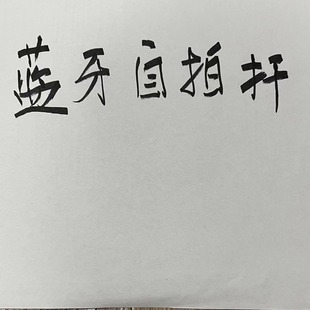 蓝牙自拍扞